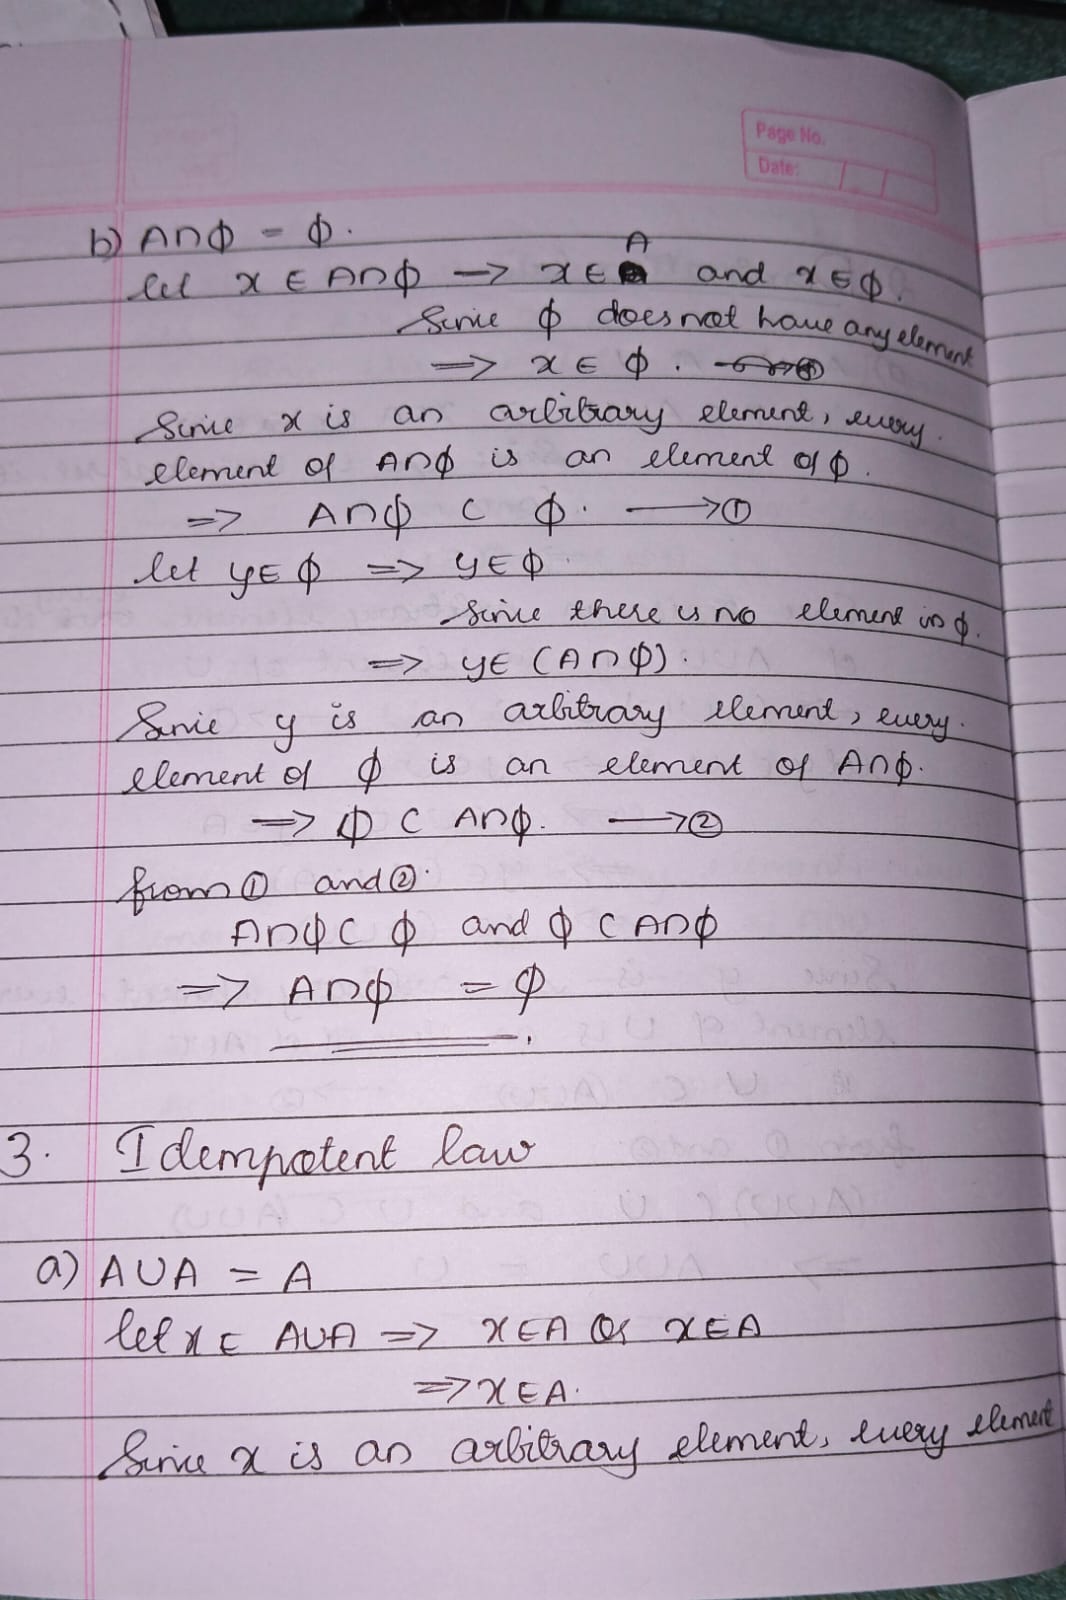 Page No.
Date:
b) A∩ϕ = ϕ.
let x ∈ A∩ϕ → x ∈ A and x ∈ ϕ.
Since ϕ does not have any element
⇒ x ∈ ϕ.
Since x is an arbitrary element, every
element of A∩ϕ is an element of ϕ.
⇒ A∩ϕ ⊂ ϕ. ⟶ ①
let y∈ ϕ ⇒ y∈ϕ.
Since there is no element in ϕ.
⇒ y∈ (A∩ϕ).
Since y is an arbitrary element, every
element of ϕ is an element of A∩ϕ.
⇒ ϕ ⊂ A∩ϕ. ⟶ ②
from ① and ②.
A∩ϕ ⊂ ϕ and ϕ ⊂ A∩ϕ
⇒ A∩ϕ = ϕ
3. Idempotent law
a) A∪A = A
let x ∈ A∪A ⇒ x∈A Or x∈A
⇒ x∈A.
Since x is an arbitrary element, every element